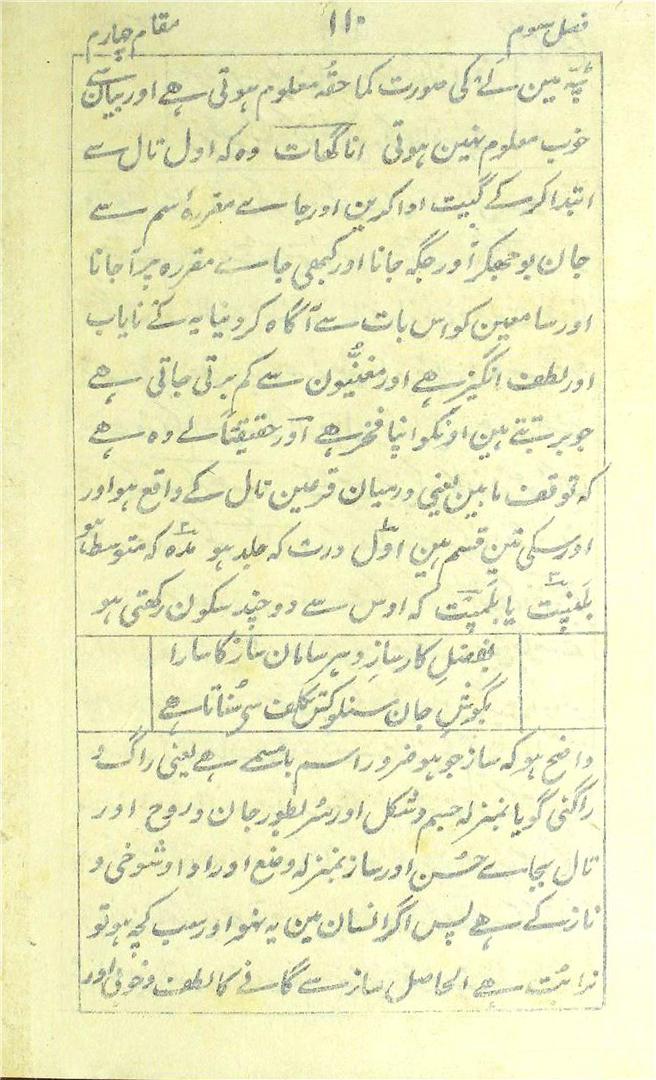 فصل سوم ۱۱۰ مقام چارم
پتہ مین لَے کی صورت کما حقہ معلوم ہوتی ہے اور بیان سے
خوب معلوم نہین ہوتی اناگھات وہ کہ اول تال سے
ابتدا کر کے گیت ادا کرین اور جاے مقررہ اسم سے
جان بوجھکر اور جگہ جانا اور کبھی جاے مقررہ پر آجانا
اور سامعین کو اس بات سے آگاہ کر دینا یہ لَے نایاب
اور لطف انگیز ہے اور مغنیّون سے کم برتی جاتی ہے
جو برتتے ہین اونکو اپنا فخر ہے اور حقیقتاً لَے وہ ہے
کہ توقف مابین یعنی درمیان قرعین تال کے واقع ہو اور
اوسکی تین قسم ہین اول درت کہ جلد ہو مدہ کہ متوسط ہو
بلمپت یا بلمپت کہ اوس سے دوچند سکون رکھتی ہو
بفضلِ کارساز دہر سامان ساز کا سارا
بگوشِ جان سنلو کشن تکلف سے سُناتا ہے
واضح ہو کہ ساز جو ہو ضرور اسم بامسمے ہے یعنی راگ و
راگنی گویا بمنزلہ جسم و شکل اور سُر بطور جان و روح اور
تال بجاے حُسن اور ساز بمنزلہ وضع اور ادا و شوخی و
ناز کے ہے پس اگر انسان مین یہ نہو اور سب کچہ ہو تو
نرا بُت ہے الحاصل ساز سے گانے کا لطف و خوبی اور